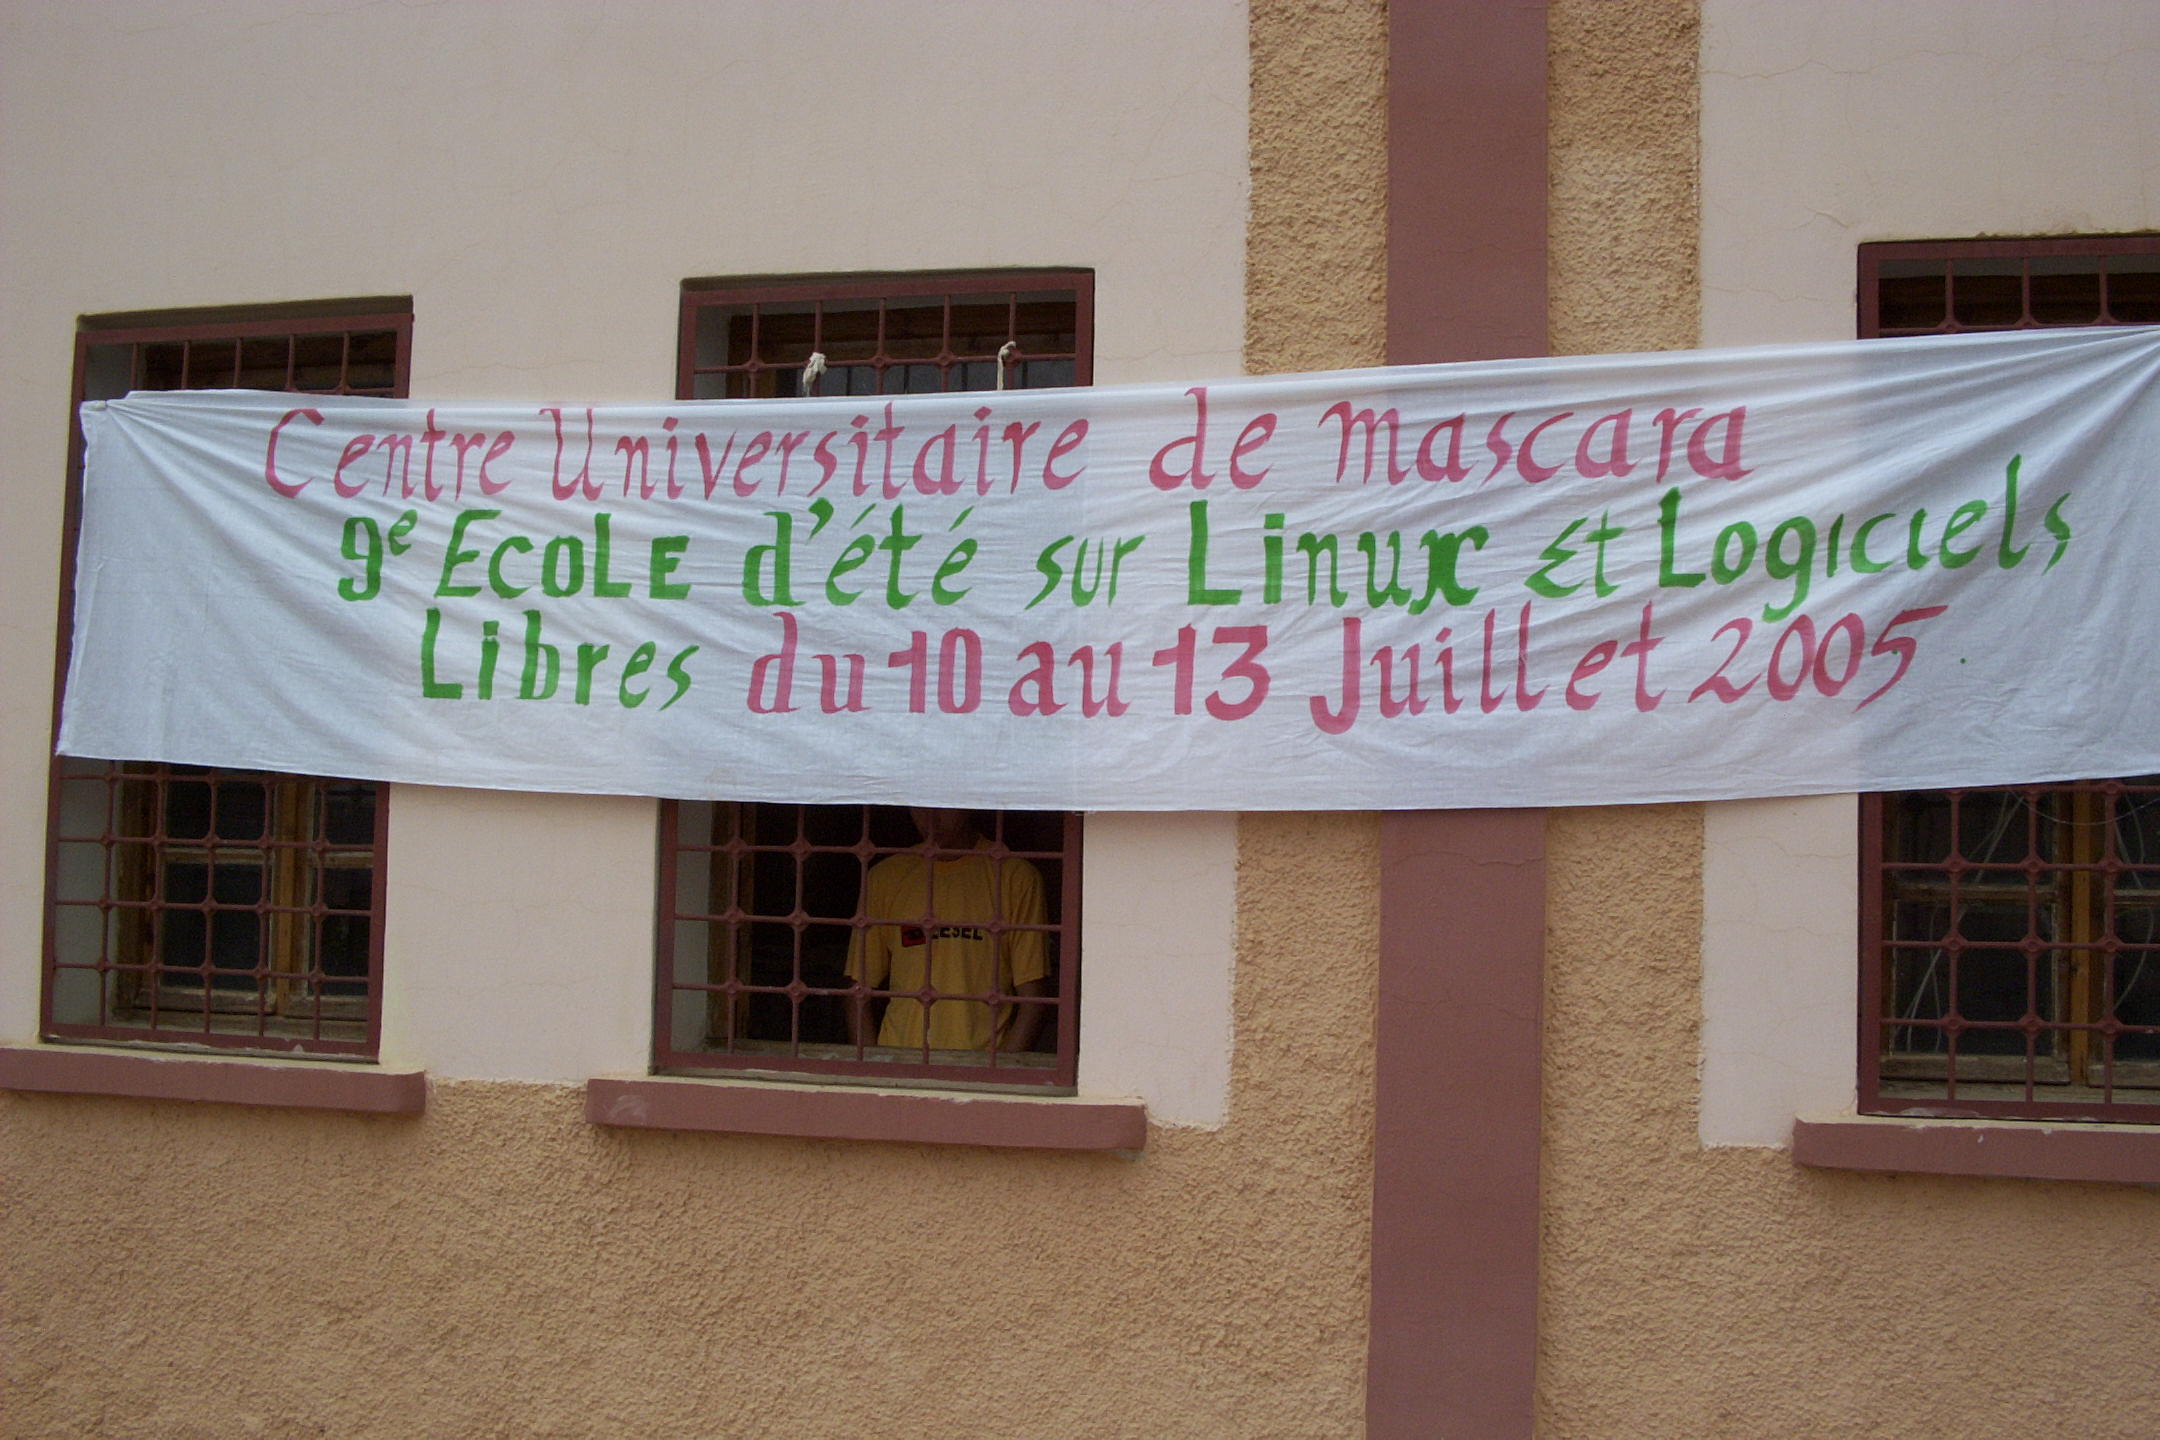 Centre Universitaire de Mascara
9e Ecole d'été sur Linux Et Logiciels
Libres du 10 au 13 Juillet 2005